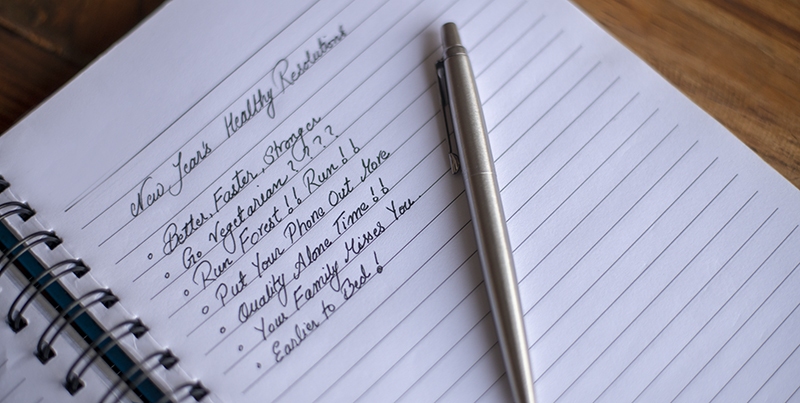 New Year's Healthy Resolutions
• Better, Faster, Stronger
• Go Vegetarian ????
• Run Forest!! Run!!
• Put Your Phone Out More
• Quality Alone Time!!
• Your Family Misses You
• Earlier to Bed!